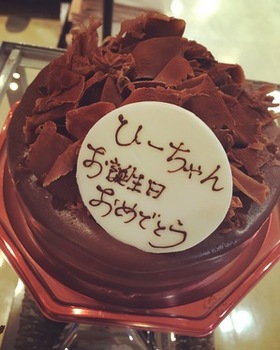 ひーちゃん
お誕生日
おめでとう